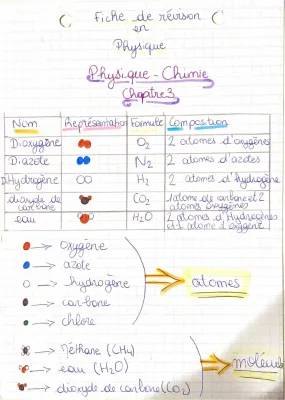 Fiche de révison
en
Physique
Physique - Chimie
Chaptre 3
Nom Représentation Formule Composition
Dioxygène O₂ 2 atomes d'oxygènes
Diazote N₂ 2 atomes d'azotes
DiHydrogène H₂ 2 atomes d'hydrogène
dioxyde de carbone CO₂ 1 atome de carbone et 2 atomes oxygènes
eau H₂O 2 atomes d'Hydrogènes et 1 atome d'oxygène
oxygène
azote
hydrogène
carbone
chlore
atomes
Méthane (CH₄)
eau (H₂O)
dioxyde de carbone (CO₂)
molécul